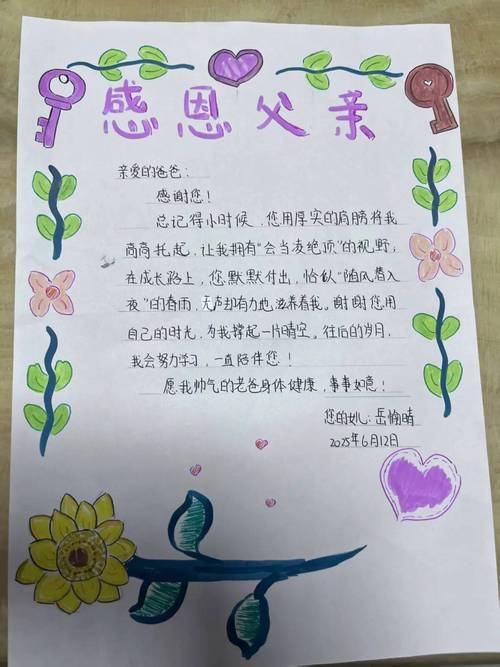 感恩父亲
亲爱的爸爸：
感谢您！
总记得小时候，您用厚实的肩膀将我
高高托起，让我拥有“会当凌绝顶”的视野；
在成长路上，您默默付出，恰似“随风潜入
夜”的春雨，无声却有力地滋养着我。谢谢您用
自己的时光，为我撑起一片晴空。往后的岁月，
我会努力学习，一直陪伴您！
愿我帅气的老爸身体健康，事事如意！
您的女儿：岳愉晴
2025年6月12日